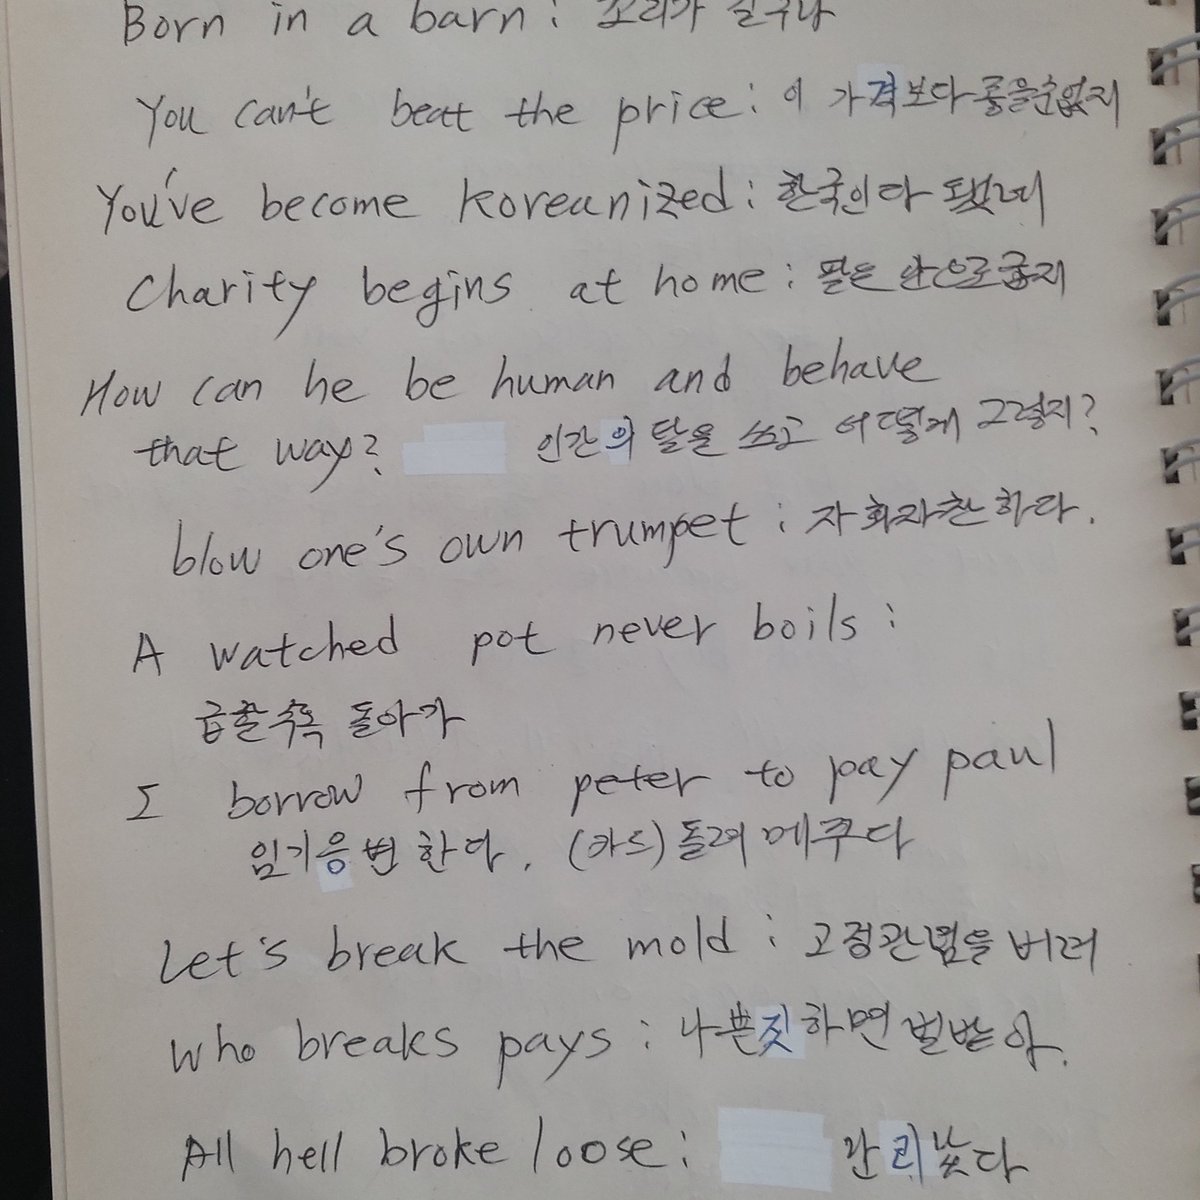 Born in a barn : 꼬리가 길구나
You can't beat the price : 이 가격보다 좋을순없지
You've become Koreanized : 한국인 다 됐네
Charity begins at home : 팔은 안으로 굽지
How can he be human and behave
that way? 인간의 탈을 쓰고 어떻게 그럴지?
blow one's own trumpet : 자화자찬하다.
A watched pot never boils :
급할수록 돌아가
I borrow from peter to pay paul
임기응변 한다. (카드) 돌려 메꾸다
Let's break the mold : 고정관념을 버려
who breaks pays : 나쁜짓하면 벌받아.
All hell broke loose : 난리났다